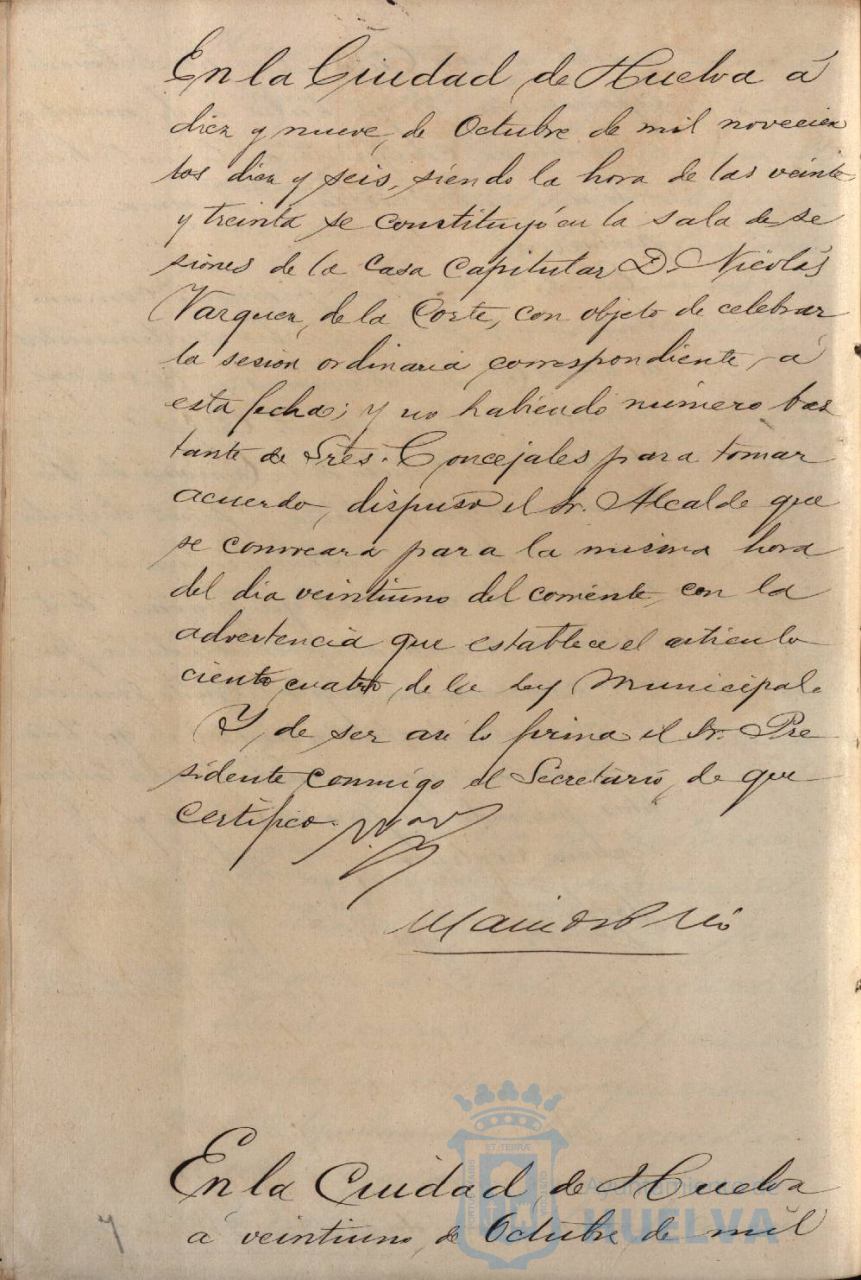 En la Ciudad de Huelva á
diez y nueve, de Octubre de mil novecien
tos diez y seis, siendo la hora de las veinte
y treinta se constituyó en la sala de se
siones de la Casa Capitular D. Nicolás
Vazquez, de la Corte, con objeto de celebrar
la sesion ordinaria correspondiente, á
esta fecha; y no habiendo número bas
tante de Sres. Concejales para tomar
acuerdo, dispuso el Sr. Alcalde que
se convocara para la misma hora
del dia veintiuno del corriente, con la
advertencia que establece el articulo
ciento cuatro, de la Ley Municipal.
Y, de ser asi lo firma el Sr. Pre
sidente conmigo el Secretario, de que
certifico.
En la Ciudad de Huelva
á veintiuno, de Octubre, de mil
Ayuntamiento de
HUELVA